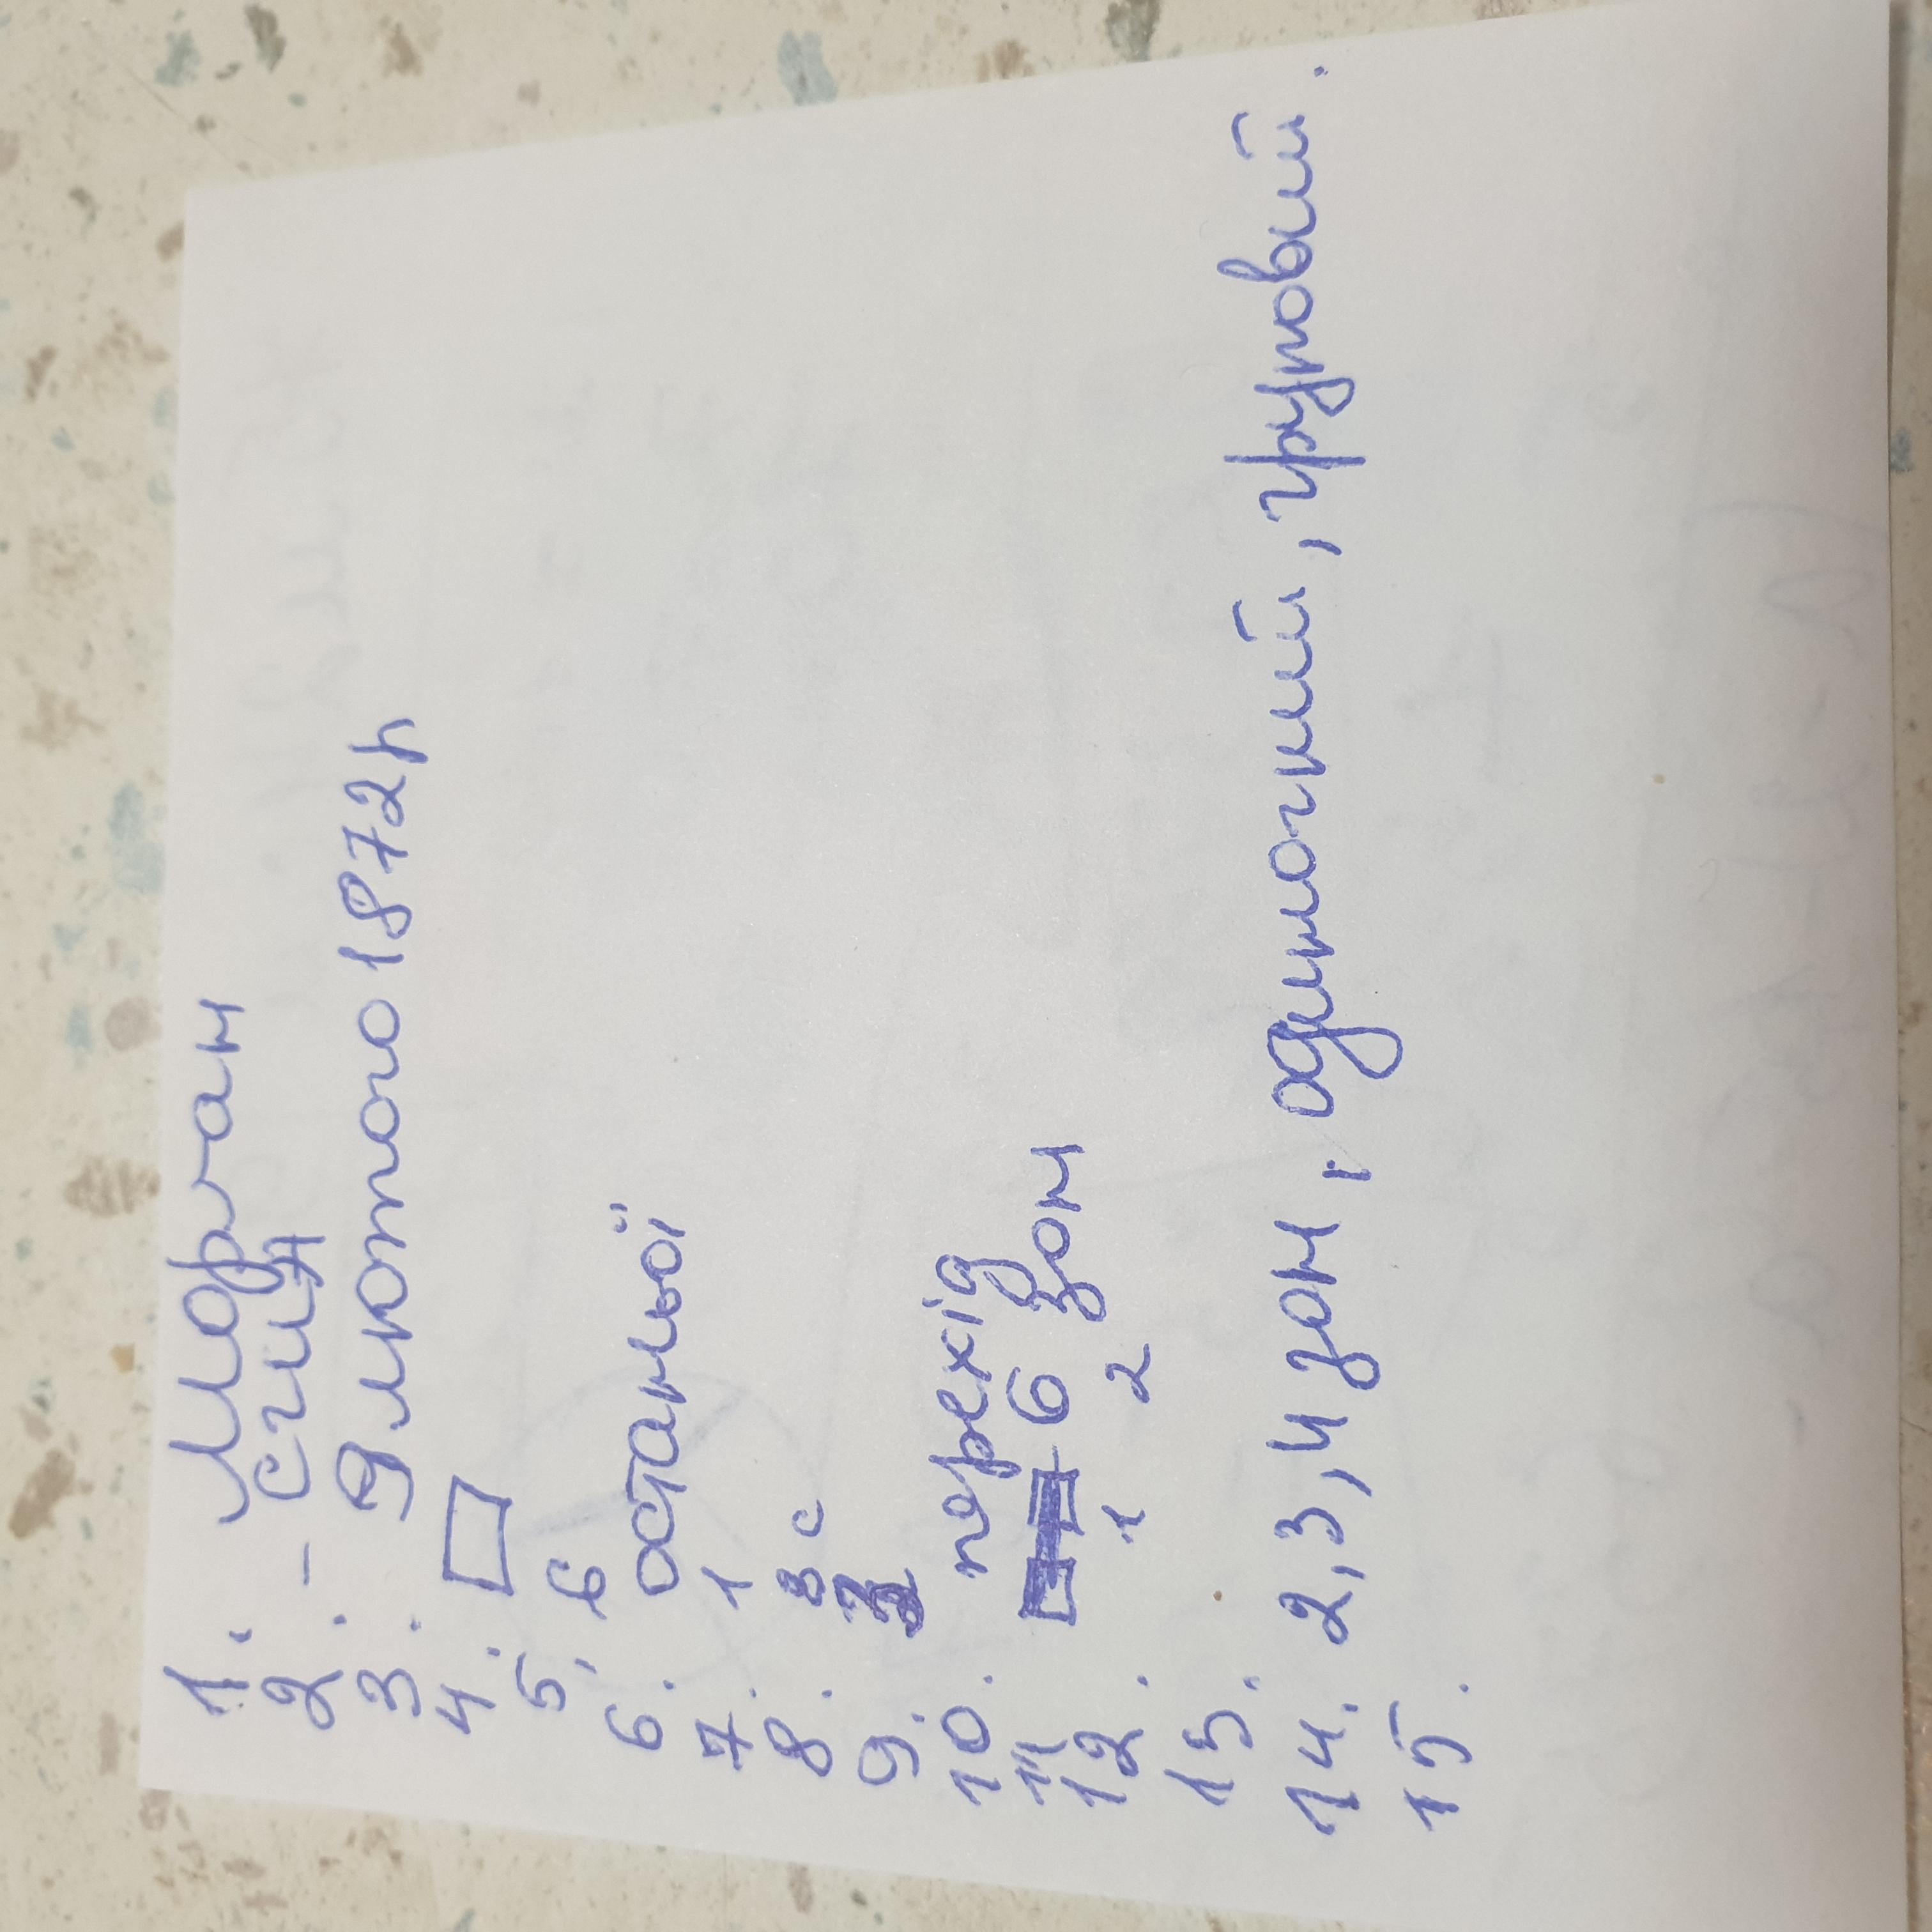 1. Морган
2. - січ
3. 9 лютого 1872р
4.
5. 6
6. останьої
7. 1
8. 3 с
9.
10. перехід
11. 6 зон
12. 1 2
13.
14. 2, 3, 4 зон, одиночний, груповий.
15.